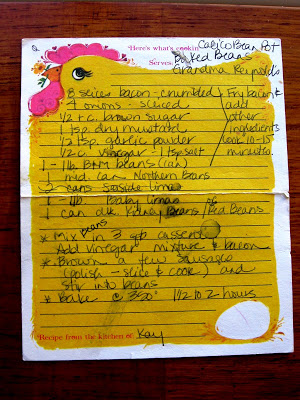 Here's what's cookin' Calico Bean Pot
Serves: Baked Beans
Grandma Reynolds
8 slices bacon - crumbled / Fry bacon &
4 onions - sliced / add
1/2 c. brown sugar / other
1 tsp. dry mustard / ingredients
1/2 tsp. garlic powder / cook 10-15
1/2 c. vinegar - 1 tsp salt / minutes.
1 - 1 lb B&M beans (can)
1 med. can Northern Beans
2 cans Seaside limas
1 - lb. Baby limas or
1 can dk Kidney Beans / Red Beans
* Mix beans in 3 qt casserole
Add vinegar mixture & bacon
* Brown a few sausages
(polish - slice & cook) and
stir into beans
* Bake @ 350° 1 1/2 to 2 hours
Recipe from the kitchen of Kay